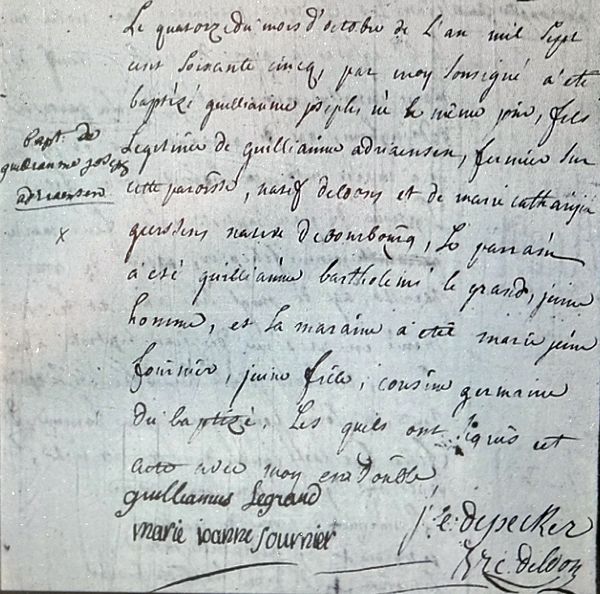 Le quatorze du mois d'octobre de L'an mil sept
cent soixante cincq, par moy sousigné a été
baptizé guilliaume joseph, né le même jour, fils
Legitime de guilliaume adriaensen, fermier sur
cette paroisse, natif deloon et de marie catharine
native de bourbourg, Le parain
a été guilliaume bartholemi le grand, jeune
homme, et La maraine a été marie jeane
fournier, jeune fille, cousine germaine
du baptizé. Les quels ont signés cet
acte avec moy en Double
bapt. de
guilliaume joseph
adriaensen
x
guilliamus Legrand
marie joanne fournier
j. e. depecker
deloon